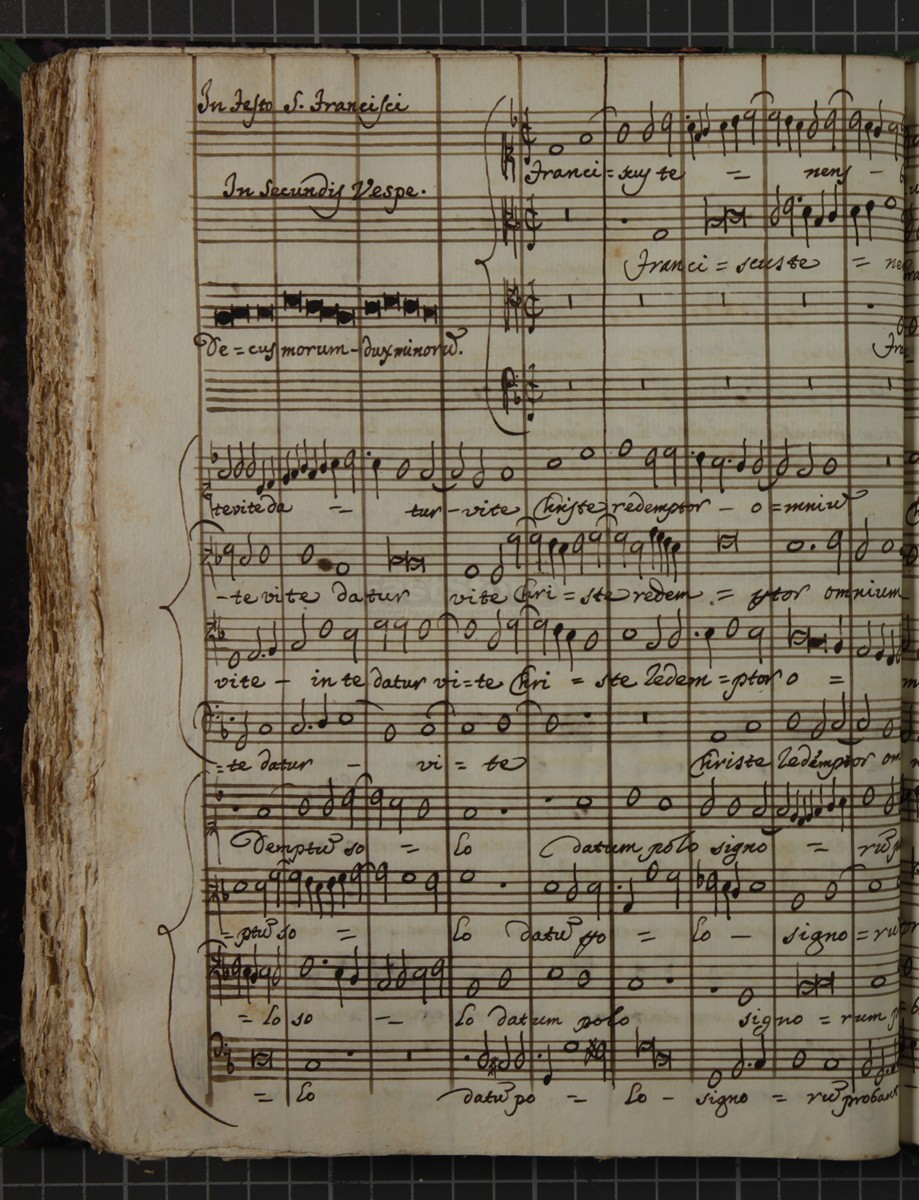 In Festo S. Francisci
Franci = scus te = nens -
In Secundis Vespe.
Franci = scus te = ne
De = cus morum - dux minorū.
Fra
te vite da = tur - vite Christe redemptor - o = mniū
- te vite datur vite Chri = ste redem = ptor omnium
vite - in te datur vi = te Chri = ste Redem = ptor o =
= te datur - vi = te Christe Redemptor om
Demptū so = lo datum polo signo = rū p
= ptū so = lo datū po = lo - signo = ru
= lo so = lo datum polo signo = rum p
= lo datū po = lo - signo = rū probans